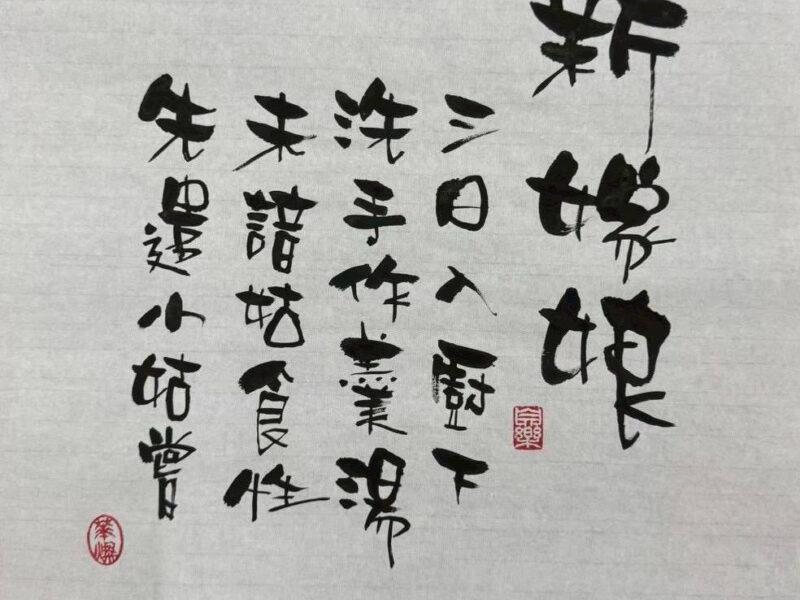 新嫁娘
三日入厨下
洗手作羹湯
未諳姑食性
先遣小姑嘗